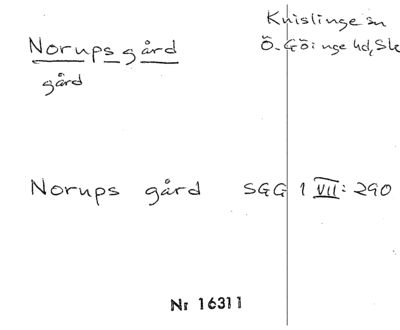 Knislinge sn
Norups gård
Ö. Göinge hd, Sk
gård
Norups gård SGG 1 VII: 290
Nr 16311